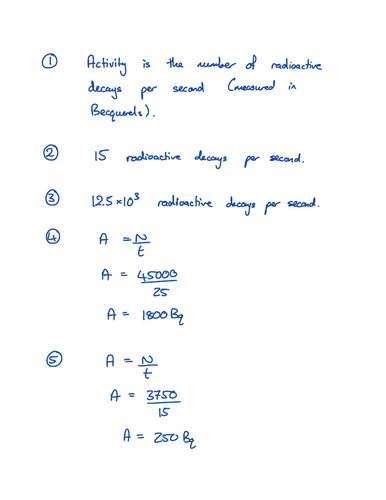 ① Activity is the number of radioactive
decays per second (measured in
Becquerels).
② 15 radioactive decays per second.
③ 12.5×10³ radioactive decays per second.
④ A = N/t
A = 45000/25
A = 1800 Bq
⑤ A = N/t
A = 3750/15
A = 250 Bq